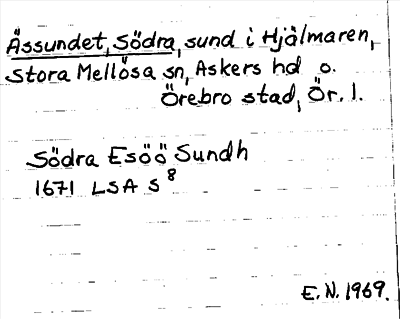 Ässundet, Södra, sund i Hjälmaren,
Stora Mellösa sn, Askers hd o.
Örebro stad, Ör. l.
Södra Esöö Sundh
1671 LSA S⁸
E.N. 1969.